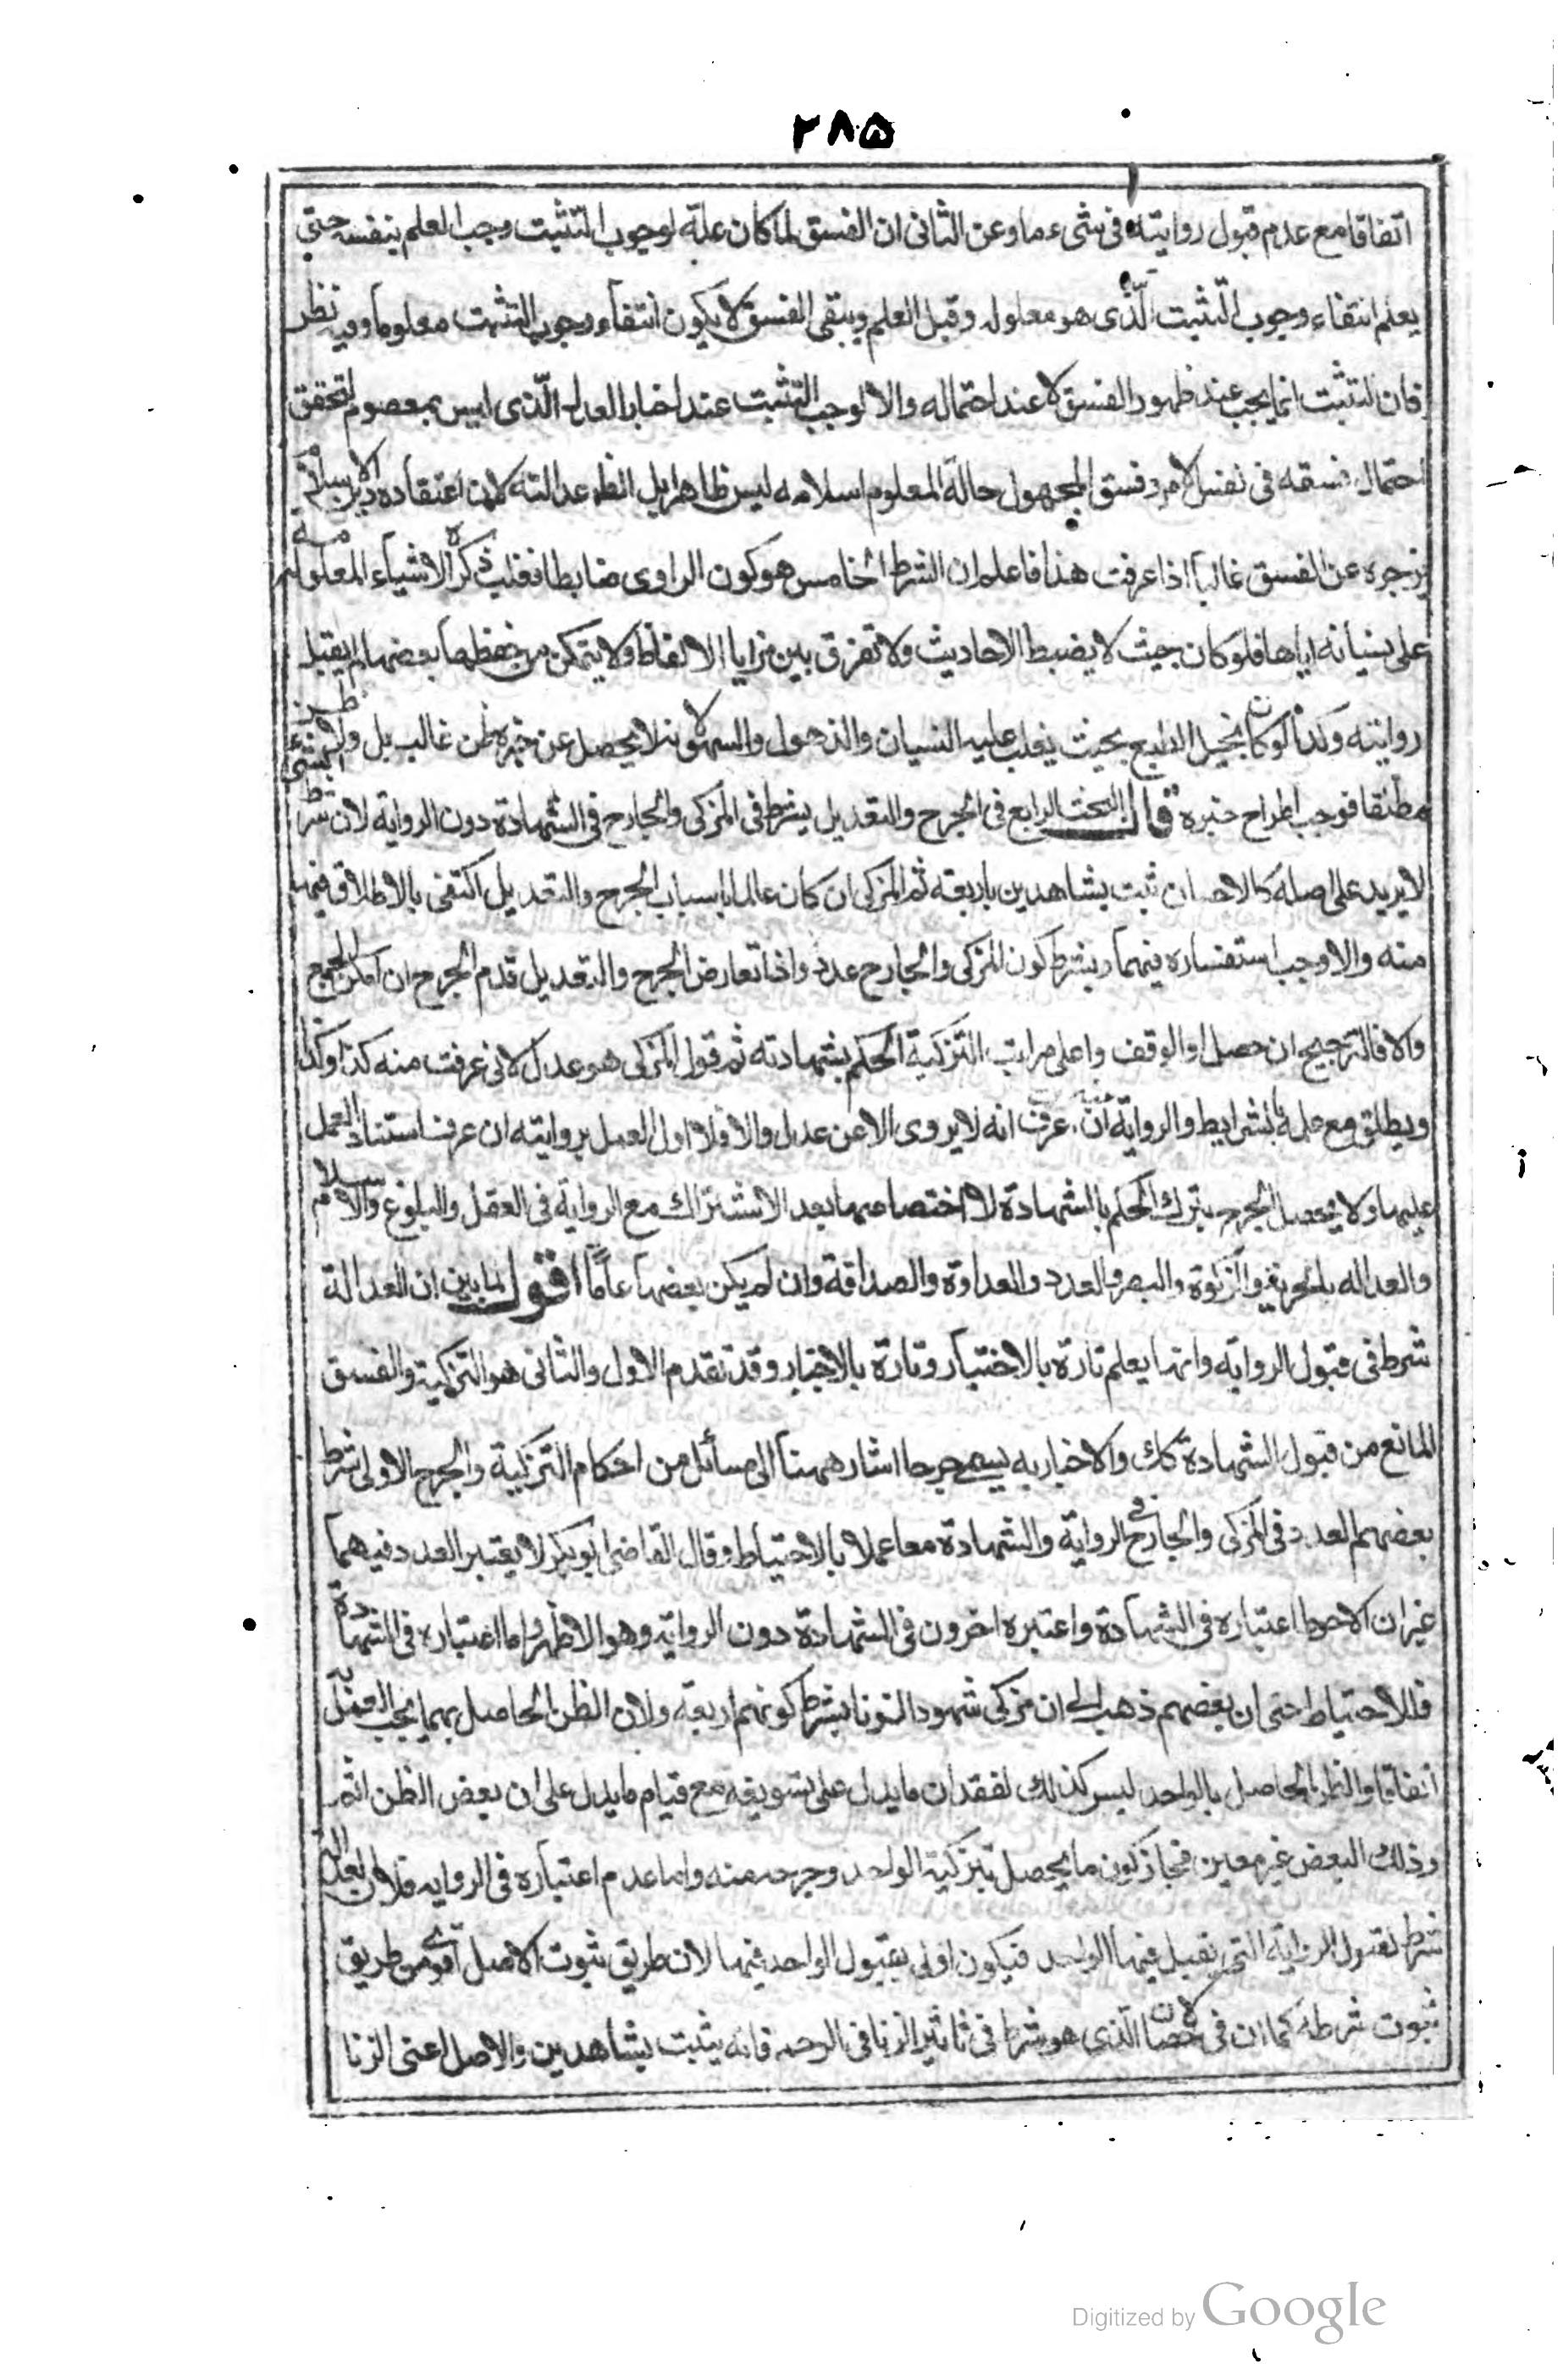 ٢٨٥
اتفاقا مع عدم قبول روايته في شيء ما وعن الثاني ان الفسق لما كان علة لوجوب التثبت وجب العلم بنفسه حتى
يعلم انتفاء وجوب التثبت الذي هو معلوله وقبل العلم ويبقى الفسق لا يكون انتفاء وجوب التثبت معلوما وفيه نظر
فان التثبت انما يجب عند ظهور الفسق لا عند احتماله والا لوجب التثبت عند اخبار العدل الذي ليس بمعصوم لتحقق
احتمال فسقه في نفس الامر وفسق المجهول حالة المعلوم اسلامه ليس ظاهرا بل الظاهر عدالته لان اعتقاده دين الاسلام
يزجره عن الفسق غالبا اذا عرفت هذا فاعلم ان الشرط الخامس هو كون الراوي ضابطا فغلب ذكره الاشياء المعلومة له
على نسيانه اياها فلو كان بحيث لا يضبط الاحاديث ولا تفرق بين مزايا الالفاظ ولا يتمكن من حفظها بعضها لم يقبل
روايته وكذا لو كان بحيث يغلب عليه النسيان والذهول والسهو لانه لا يحصل عن خبره ظن غالب بل ولا ظن الشيء
مطلقا فوجب اطراح خبره قال البحث الرابع في الجرح والتعديل يشترط في المزكي والجارح في الشهادة دون الرواية لان شرط
لا يزيد على اصله كالاحصان ثبت بشاهدين باربعة ثم المزكي ان كان عالما باسباب الجرح والتعديل اكتفى بالاطلاق فيهما
منه والا وجب استفساره فيهما ويشترط كون المزكي والجارح عدلا واذا تعارض الجرح والتعديل قدم الجرح ان امكن الجمع
والا فالترجيح ان حصل او الوقف واعلى مراتب التزكية الحكم بشهادته ثم قول المزكي هو عدل لاني عرفت منه كذا وكذا
ويطلق مع علمه بالشرايط والرواية عنه ان عرف انه لا يروي الا عن عدل والا فلا اول العمل بروايته ان عرف استناد العمل
عليها ولا يحصل الجرح بترك الحكم بالشهادة لاختصاصها بعد الاشتراك مع الرواية في العقل والبلوغ والاسلام
والعدالة بالحرية والذكورة والبصر والعدد والعداوة والصداقة وان لم يكن بعضها عاما اقول لما بين ان العدالة
شرط في قبول الرواية وانها يعلم تارة بالاختبار وتارة بالاخبار وقد تقدم الاول والثاني هو التزكية والفسق
المانع من قبول الشهادة كك والاخبار به يسمى جرحا اشار ههنا الى مسائل من احكام التزكية والجرح الاولى شرط
بعضهم العدد في المزكي والجارح في الرواية والشهادة معا عملا بالاحتياط وقال القاضي ابو بكر لا يعتبر العدد فيهما
غير ان الاحوط اعتباره في الشهادة واعتبره اخرون في الشهادة دون الرواية وهو الاظهر واما اعتباره في الشهادة
فللاحتياط حتى ان بعضهم ذهب الى ان مزكي شهود الزنا يشترط كونهم اربعة ولان الظن الحاصل بهما يجب العمل به
اتفاقا والظن الحاصل بالواحد ليس كذلك لفقدان ما يدل على تسويغه مع قيام ما يدل على ان بعض الظن اثم
وذلك البعض غير معين فجاز كون ما يحصل بتزكية الواحد وجرحه منه واما عدم اعتباره في الرواية فلان العدالة
شرط لقبول الرواية التي يقبل فيها الواحد فيكون اولى بقبول الواحد فيها لان طريق ثبوت الاصل اقوى من طريق
ثبوت شرطه كما ان في الاحصان الذي هو شرط في تاثير الزنا في الرجم فانه يثبت بشاهدين والاصل اعني الزنا
Digitized by Google